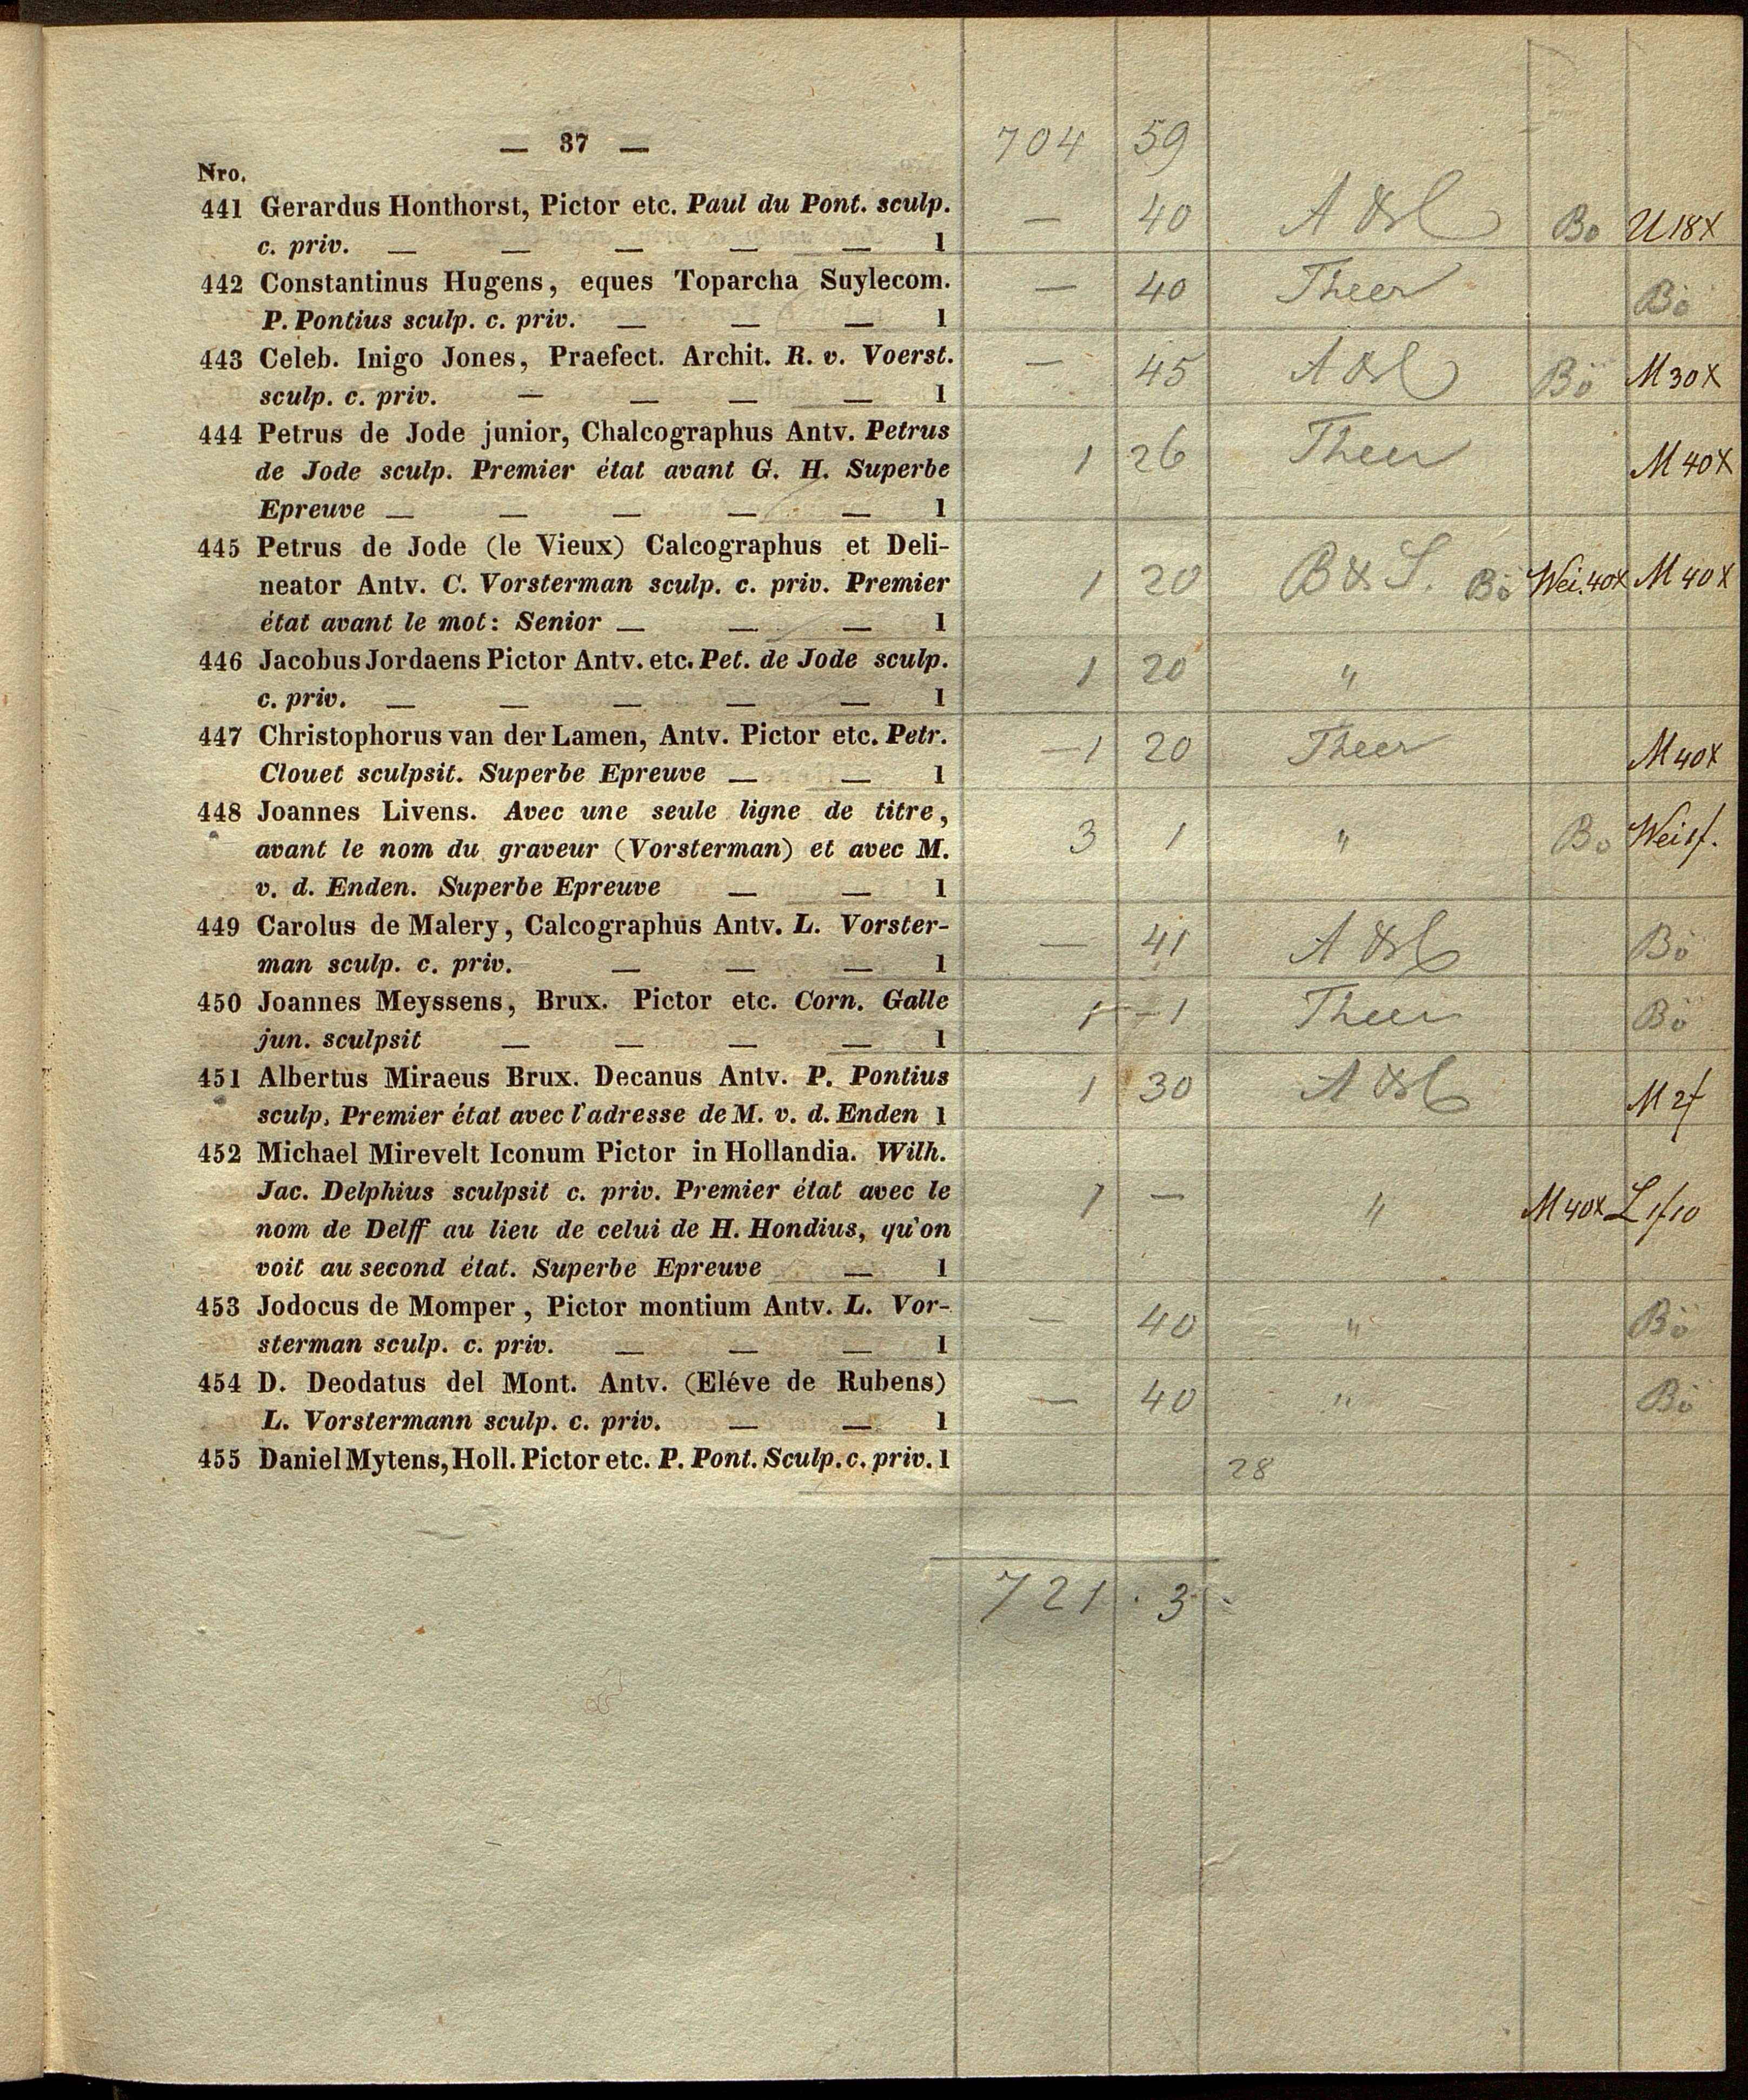 — 37 — 704 59
Nro.
441 Gerardus Honthorst, Pictor etc. Paul du Pont. sculp. — 40 Bo U 18x
c. priv. — — — — — 1
442 Constantinus Hugens, eques Toparcha Suylecom. — 40 Theer Bö
P. Pontius sculp. c. priv. — — — 1
443 Celeb. Inigo Jones, Praefect. Archit. R. v. Voerst. — 45 Bö M 30x
sculp. c. priv. — — — — 1
444 Petrus de Jode junior, Chalcographus Antv. Petrus
de Jode sculp. Premier état avant G. H. Superbe 1 26 Theer M 40x
Epreuve — — — — — 1
445 Petrus de Jode (le Vieux) Calcographus et Deli-
neator Antv. C. Vorsterman sculp. c. priv. Premier 1 20 B & S. Bö Wei. 40x M 40x
état avant le mot: Senior — — — 1
446 Jacobus Jordaens Pictor Antv. etc. Pet. de Jode sculp. 1 20 "
c. priv. — — — — — 1
447 Christophorus van der Lamen, Antv. Pictor etc. Petr. — 1 20 Theer M 40x
Clouet sculpsit. Superbe Epreuve — — 1
448 Joannes Livens. Avec une seule ligne de titre,
avant le nom du graveur (Vorsterman) et avec M. 3 1 " Bo Wei 1f.
v. d. Enden. Superbe Epreuve — — 1
449 Carolus de Malery, Calcographus Antv. L. Vorster- — 41 Bö
man sculp. c. priv. — — — 1
450 Joannes Meyssens, Brux. Pictor etc. Corn. Galle 1 — 1 Theer Bö
jun. sculpsit — — — — 1
451 Albertus Miraeus Brux. Decanus Antv. P. Pontius 1 30 M 2f
sculp, Premier état avec l'adresse de M. v. d. Enden 1
452 Michael Mirevelt Iconum Pictor in Hollandia. Wilh.
Jac. Delphius sculpsit c. priv. Premier état avec le 1 — " M 40x L 1f10
nom de Delff au lieu de celui de H. Hondius, qu'on
voit au second état. Superbe Epreuve — 1
453 Jodocus de Momper, Pictor montium Antv. L. Vor- — 40 " Bö
sterman sculp. c. priv. — — — 1
454 D. Deodatus del Mont. Antv. (Eléve de Rubens) — 40 " Bö
L. Vorstermann sculp. c. priv. — — 1
455 Daniel Mytens, Holl. Pictor etc. P. Pont. Sculp. c. priv. 1 28
721 . 3 .